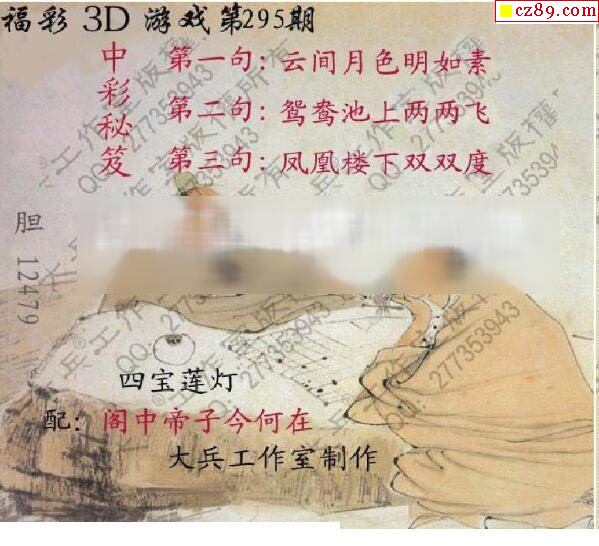 福彩 3D 游戏第295期
cz89.com
中彩秘笈
第一句：云间月色明如素
第二句：鸳鸯池上两两飞
第三句：凤凰楼下双双度
胆 12479
四宝莲灯
配：阁中帝子今何在
大兵工作室制作
大兵工作室版权所有
QQ：277353943